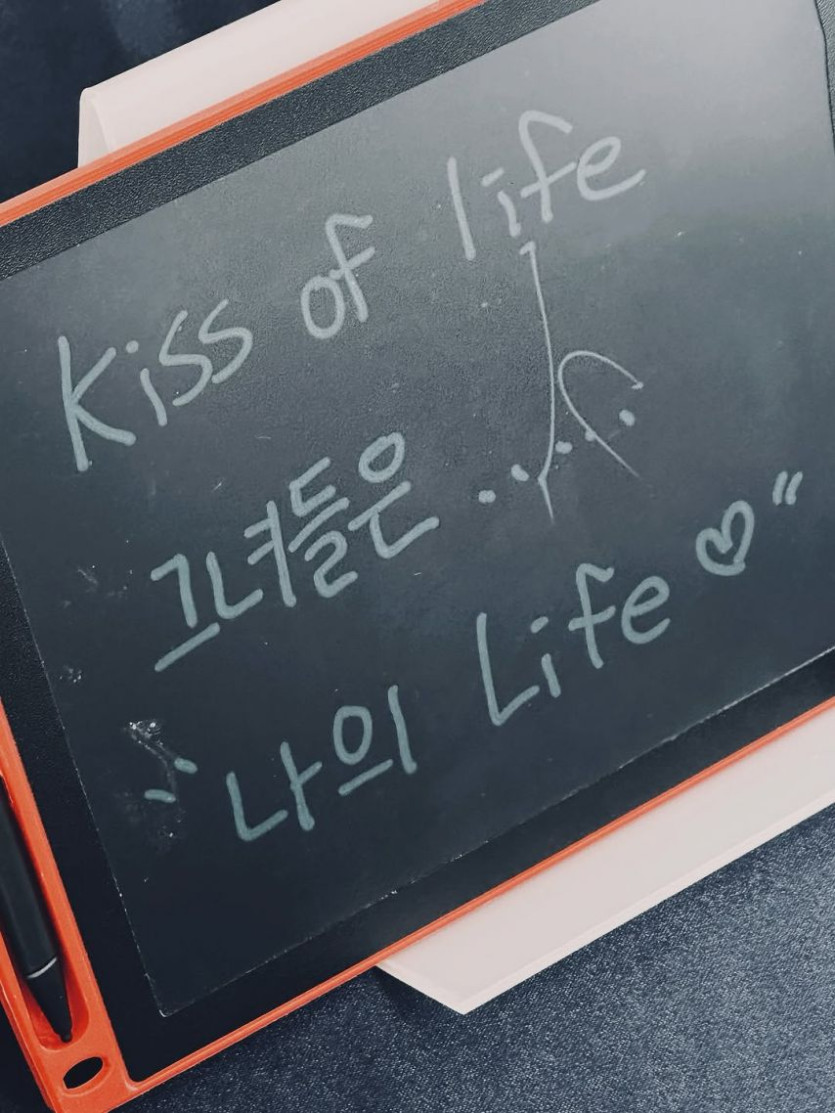 Kiss of life
그녀들은 .....
"나의 Life ♡"